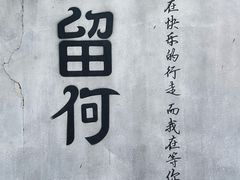 在快乐的行走 而我在等你
留何